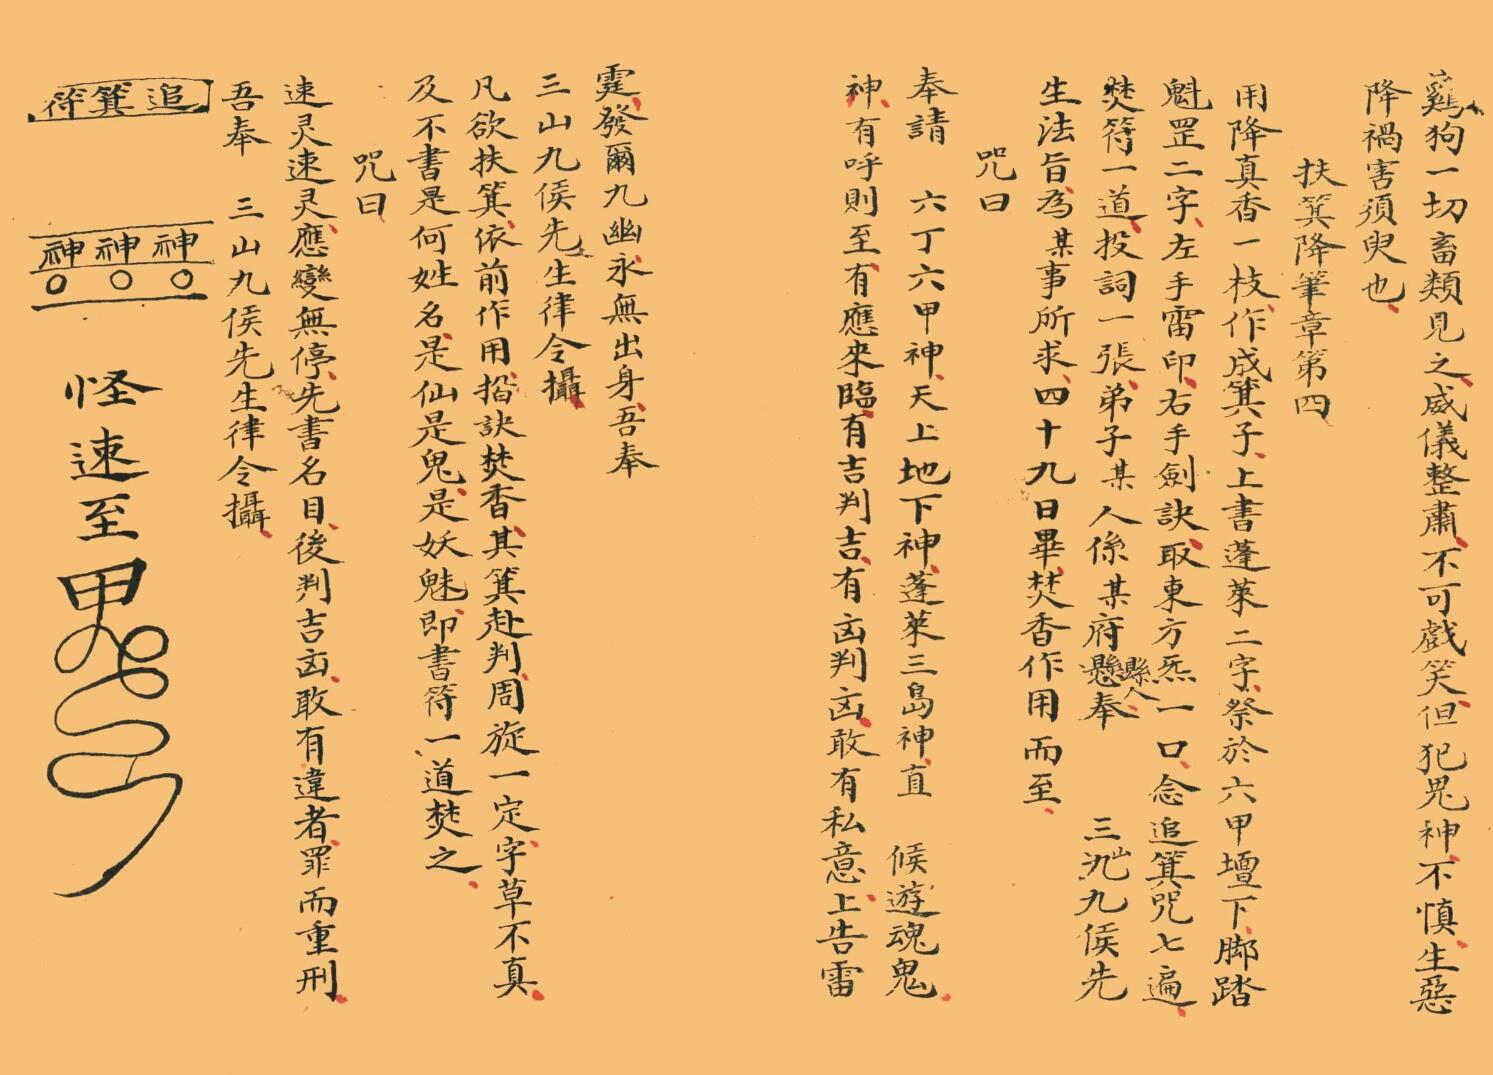 雞狗一切畜類見之威儀整肅不可戲笑但犯鬼神不慎生惡
降禍害須臾也
扶箕降筆章第四
用降真香一枝作成箕子上書蓬萊二字祭於六甲壇下脚踏
魁罡二字左手雷印右手劍訣取東方炁一口念追箕咒七遍
焚符一道投詞一張弟子某人係某府懸縣人奉 三山九侯先
生法旨為某事所求四十九日畢焚香作用而至
咒曰
奉請 六丁六甲神天上地下神蓬萊三島神直 候遊魂鬼
神有呼則至有應來臨有吉判吉有凶判凶敢有私意上告雷
霆發爾九幽永無出身吾奉
三山九侯先生律令攝
凡欲扶箕依前作用掐訣焚香其箕赴判周旋一定字草不真
及不書是何姓名是仙是鬼是妖魅即書符一道焚之
咒曰
速灵速灵應變無停先書名目後判吉凶敢有違者罪而重刑
吾奉 三山九侯先生律令攝
追箕符
神神神
怪速至鬼